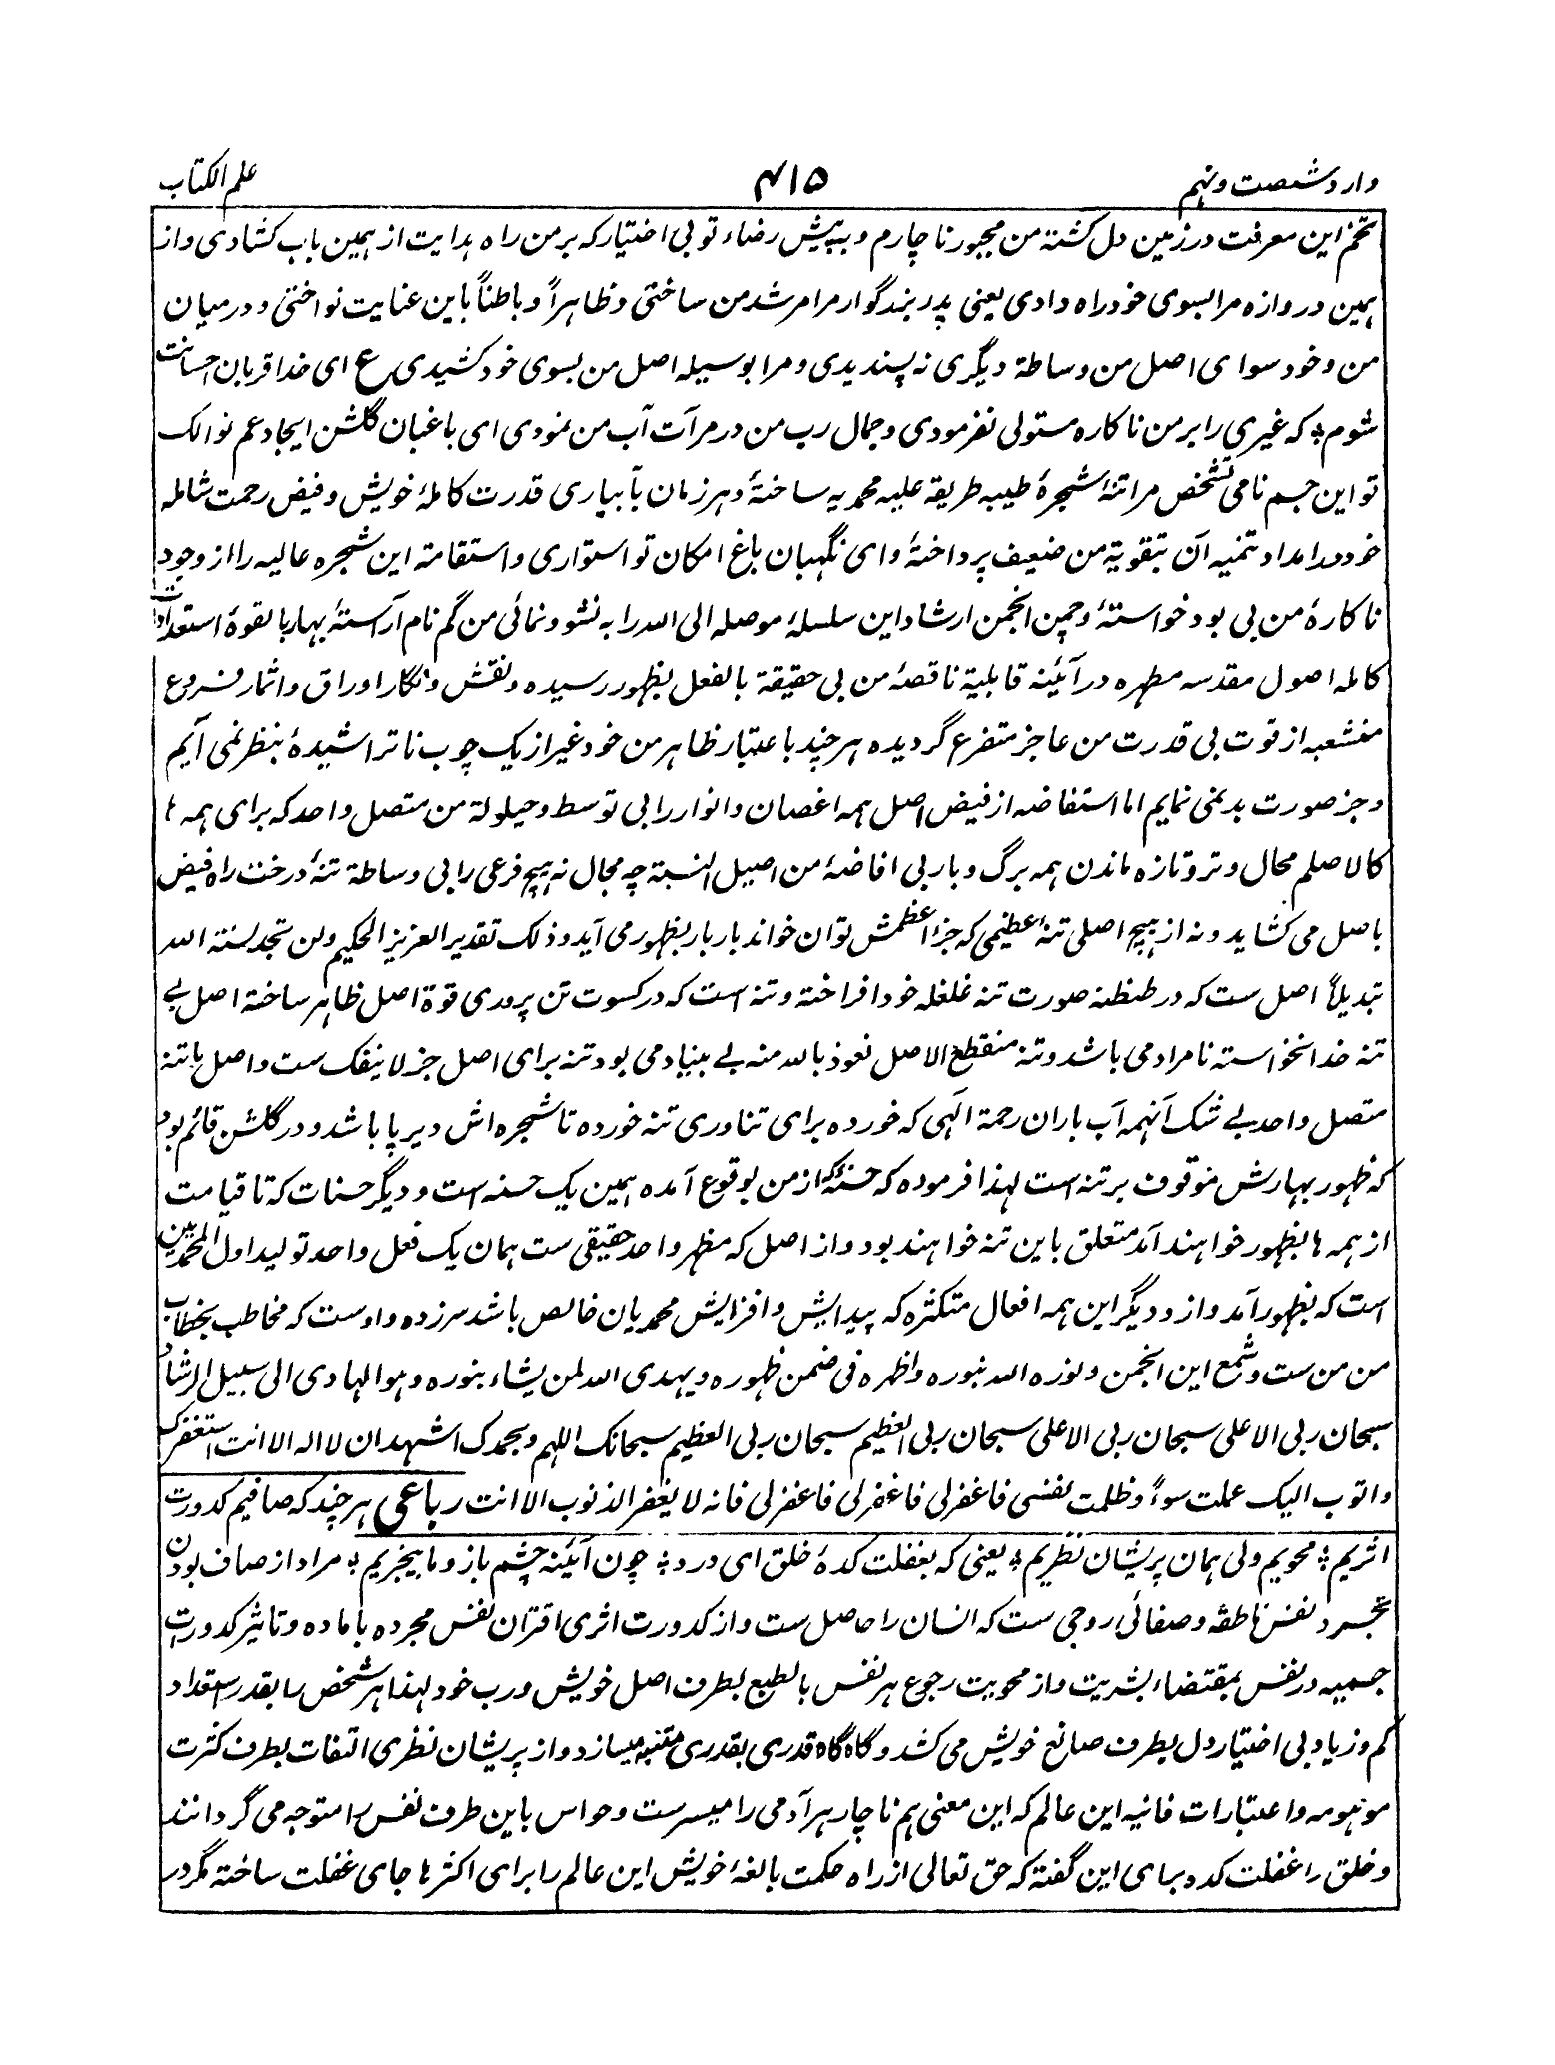 وارد شصت و نهم ۴۱۵ علم الکتاب
تخم این معرفت در زمین دل کشتهٔ من مجبور ناچارم و به پیش رضاء تو بی اختیار که بر من راه هدایت از همین باب کشادی و از
همین دروازه مرا بسوی خود راه دادی یعنی پدر بزرگوار مرا مرشد من ساختی و ظاهراً و باطناً باین عنایت نواختی و درمیان
من و خود سوای اصل من وساطة دیگری نه پسندیدی و مرا بوسیله اصل من بسوی خود کشیدی ع ای خدا قربان احسانت
شوم؛ که غیری را بر من ناکاره مستولی نفرمودی و جمال رب من در مرآت آب من نمودی ای باغبان گلشن ایجاد عم نوالک
تو این جسم نامی تشخص مرا تنهٔ شجرهٔ طیبه طریقه علیه محمدیه ساختهٔ و هر زمان بآبیاری قدرت کاملهٔ خویش و فیض رحمت شامله
خود در امداد تنمیه آن بتقویة من ضعیف پرداختهٔ و ای نگهبان باغ امکان تو استواری و استقامة این شجره عالیه را از وجود
ناکارهٔ من بی بود خواستهٔ و چمن انجمن ارشاد این سلسلهٔ موصله الی الله را به نشو و نمائی من گم نام آراستهٔ بهار بالقوهٔ استعدادات
کامله اصول مقدسه مطهره در آئینه قابلیة ناقصهٔ من بی حقیقة بالفعل بظهور رسیده و نقش و نگار اوراق و اثمار فروع
منشعبه از قوت بی قدرت من عاجز متفرع گردیده هر چند باعتبار ظاهر من خود غیر از یک چوب ناتراشیدهٔ بنظر نمی آیم
و جز صورت بد نمی نمایم اما استفاضه از فیض اصل همه اغصان و انوار را بی توسط و حیلولة من متصل واحد که برای همه ها
کالاصلم محال و تر و تازه ماندن همه برگ و بار بی افاضهٔ من اصیل النسبة چه مجال نه هیچ فرعی را بی وساطة تنهٔ درخت راه فیض
باصل می کشاید و نه از هیچ اصلی تنهٔ عظیمی که جزء اعظمش توان خواند بار بار بظهور می آید و ذلک تقدیر العزیز الحکیم ولن تجد لسنة الله
تبدیلاً اصل ست که در طنطنه صورت تنه غلغله خود افراخته و تنه است که در کسوت تن پروری قوة اصل ظاهر ساخته اصل بے
تنه خدانخواسته نامراد می باشد و تنه منقطع الاصل نعوذ بالله منه بے بنیاد می بود تنه برای اصل جز لاینفک ست و اصل با تنه
متصل واحد بے شک آنهمه آب باران رحمة الهی که خورده برای تناوری تنه خورده تا شجره اش دیر پا باشد و در گلشن قائم بود
که ظهور بهارش موقوف بر تنه است لهذا فرموده که حسنهٔ که از من بوقوع آمده همین یک حسنه است و دیگر حسنات که تا قیامت
از همه ها بظهور خواهند آمد متعلق باین تنه خواهند بود و از اصل که مظهر واحد حقیقی ست همان یک فعل واحد تولید اول المحمدیین
است که بظهور آمد و از و دیگر این همه افعال متکثره که پیدایش و افزایش محمدیان خالص باشد سر زده و اوست که مخاطب بخطاب
من من ست و شمع این انجمن و نوره الله بنوره و اظهره فی ضمن ظهوره و یهدی الله لمن یشاء بنوره و هو الهادی الی سبیل الرشاد
سبحان ربی الاعلی سبحان ربی الاعلی سبحان ربی العظیم سبحان ربی العظیم سبحانک اللهم و بحمدک اشهد ان لا اله الا انت استغفرک
و اتوب الیک عملت سوءً و ظلمت نفسی فاغفرلی فاغفرلی فاغفرلی فانه لا یغفر الذنوب الا انت رباعی هر چند که صافیم کدورت
اثریم؛ محویم ولی همان پریشان نظریم؛ یعنی که بغفلت کدهٔ خلق ای درد؛ چون آئینه چشم باز و ما بیخبریم؛ مراد از صاف بودن
تجرد نفس ناطقه و صفائی روحی ست که انسان را حاصل ست و از کدورت اثری اقتران نفس مجرده با ماده و تاثیر کدورات
جسمیه در نفس بمقتضاء بشریت و از محویت رجوع هر نفس بالطبع بطرف اصل خویش و رب خود لهذا هر شخص را بقدر استعداد
کم و زیاد بی اختیار دل بطرف صانع خویش می کشد و گاه گاه قدری بقدری متنبه میسازد و از پریشان نظری التفات بطرف کثرت
موهومه و اعتبارات فانیه این عالم که این معنی هم ناچار هر آدمی را میسرست و حواس باین طرف نفس را متوجه می گردانند
و خلق را غفلت کده برای این گفته که حق تعالی از راه حکمت بالغهٔ خویش این عالم را برای اکثرها جای غفلت ساخته مگر در